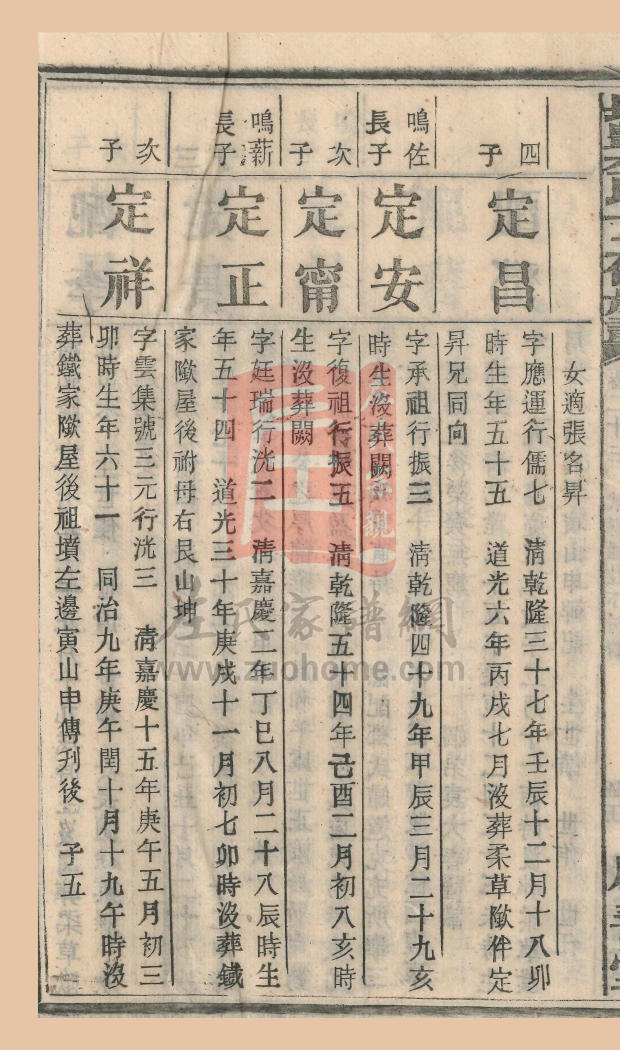 女適張名昇
四
子
定昌
字應運行儒七　清乾隆三十七年壬辰十二月十八卯
時生年五十五　道光六年丙戌七月沒葬柔草歐伴定
昇兄同向
鳴佐
長子
定安
字承祖行振三　清乾隆四十九年甲辰三月二十九亥
時生沒葬闕
次
子
定甯
字復祖行振五　清乾隆五十四年己酉二月初八亥時
生沒葬闕
鳴薪
長子
定正
字廷瑞行洸二　清嘉慶二年丁巳八月二十八辰時生
年五十四　道光三十年庚戌十一月初七卯時沒葬鐵
家歐屋後祔母右艮山坤
次
子
定祥
字雲集號三元行洸三　清嘉慶十五年庚午五月初三
卯時生年六十一　同治九年庚午閏十月十九午時沒
葬鐵家歐屋後祖墳左邊寅山申傳刋後　子五
左氏家譜網
www.zuohome.com